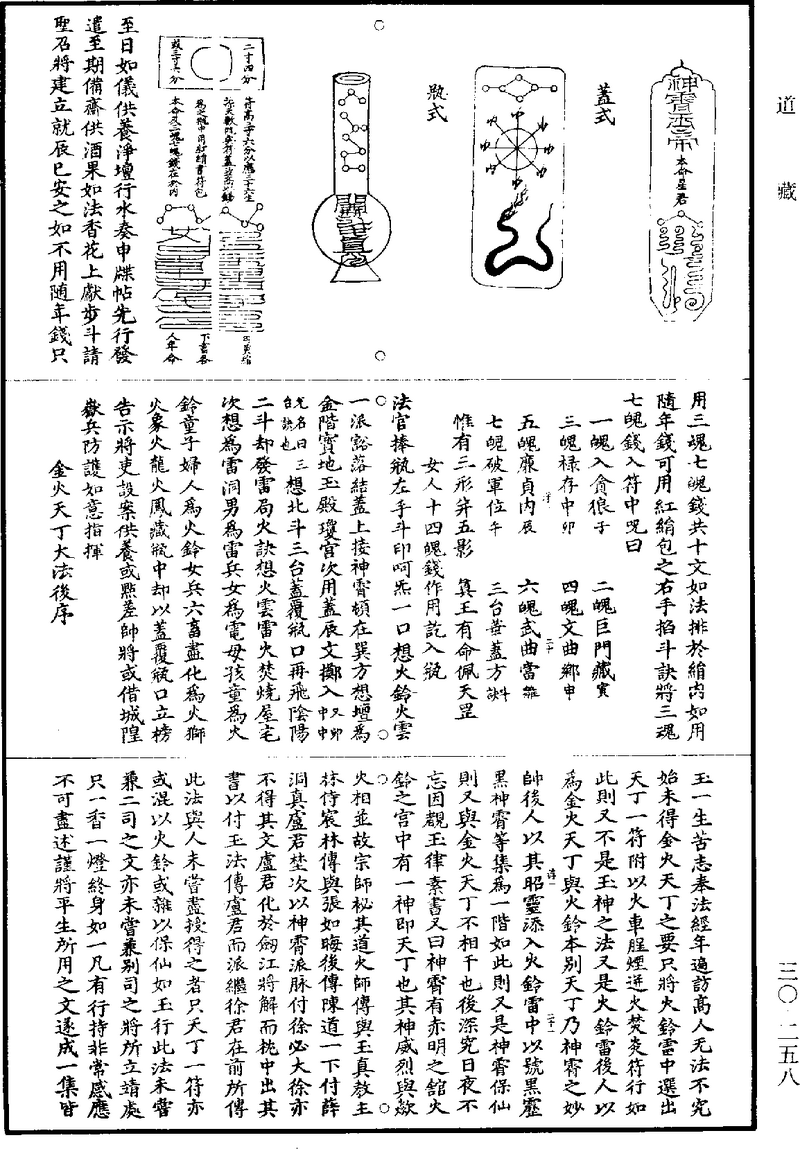 道藏
三〇・二五八
神霄玉帝
本命星君
蓋式
瓶式
二寸四分
或三寸六分
符高三寸六分以應三十六
為之瓶中用紅絹書符包
本命三魂七魄錢在於內
下書各
人年命
至日如儀供養淨壇行水奏申牒帖先行發
遣至期備齋供酒果如法香花上獻步斗請
聖召將建立就辰巳安之如不用隨年錢只
用三魂七魄錢共十文如法排於絹內如用
隨年錢可用紅絹包之右手掐斗訣將三魂
七魄錢入符中咒曰
一魄入貪狼子　二魄巨門藏寅
三魄祿存中卯　四魄文曲鄉申
五魄廉貞內辰　六魄武曲當離
七魄破軍位午　三台華蓋方訣斗
惟有三形并五影　真王有命佩天罡
女人十四魄錢作用訖入瓶
法官捧瓶左手斗印呵炁一口想火鈴火雲
一派谿落結蓋上接神霄頓在巽方想壇為
金階寶地玉殿瓊宮次用蓋辰文擲入中又卯
先名曰三台訣也想北斗三台蓋覆瓶口再飛陰陽
二斗却發雷局火訣想火雲雷火焚燒屋宅
次想為雷洞男為雷兵女為電母孩童為火
鈴童子婦人為火鈴女兵六畜盡化為火獅
火象火龍火鳳藏瓶中却以蓋覆瓶口立榜
告示將吏設案供養或點差帥將或借城隍
嶽兵防護如意指揮
金火天丁大法後序
玉一生苦志奉法經年遍訪高人無法不究
始未得金火天丁之要只將火鈴雷中選出
天丁一符附以火車腥煙迸火焚炎符行如
此則又不是玉神之法又是火鈴雷後人以
為金火天丁與火鈴本別天丁乃神霄之妙
帥後人以其昭靈添入火鈴雷中以號黑靈
黑神霄等集為一階如此則又是神霄保仙
則又與金火天丁不相干也後深究日夜不
忘因覩玉律素書又曰神霄有赤明之館火
鈴之宮中有一神即天丁也其神威烈與歘
火相並故宗師秘其道火師傳與玉真教主
林侍宸林傳與張如晦後傳陳道一下付薛
洞真盧君埜次以神霄派脉付徐必大徐亦
不得其文盧君化於劒江將解而枕中出其
書以付玉法傳盧君而派繼徐君在前所傳
此法與人未嘗盡授得之者只天丁一符亦
或混以火鈴或雜以保仙如玉行此法未嘗
兼二司之文亦未嘗兼別司之將所立靖處
只一香一燈終身如一凡有行持非常感應
不可盡述謹將平生所用之文遂成一集皆